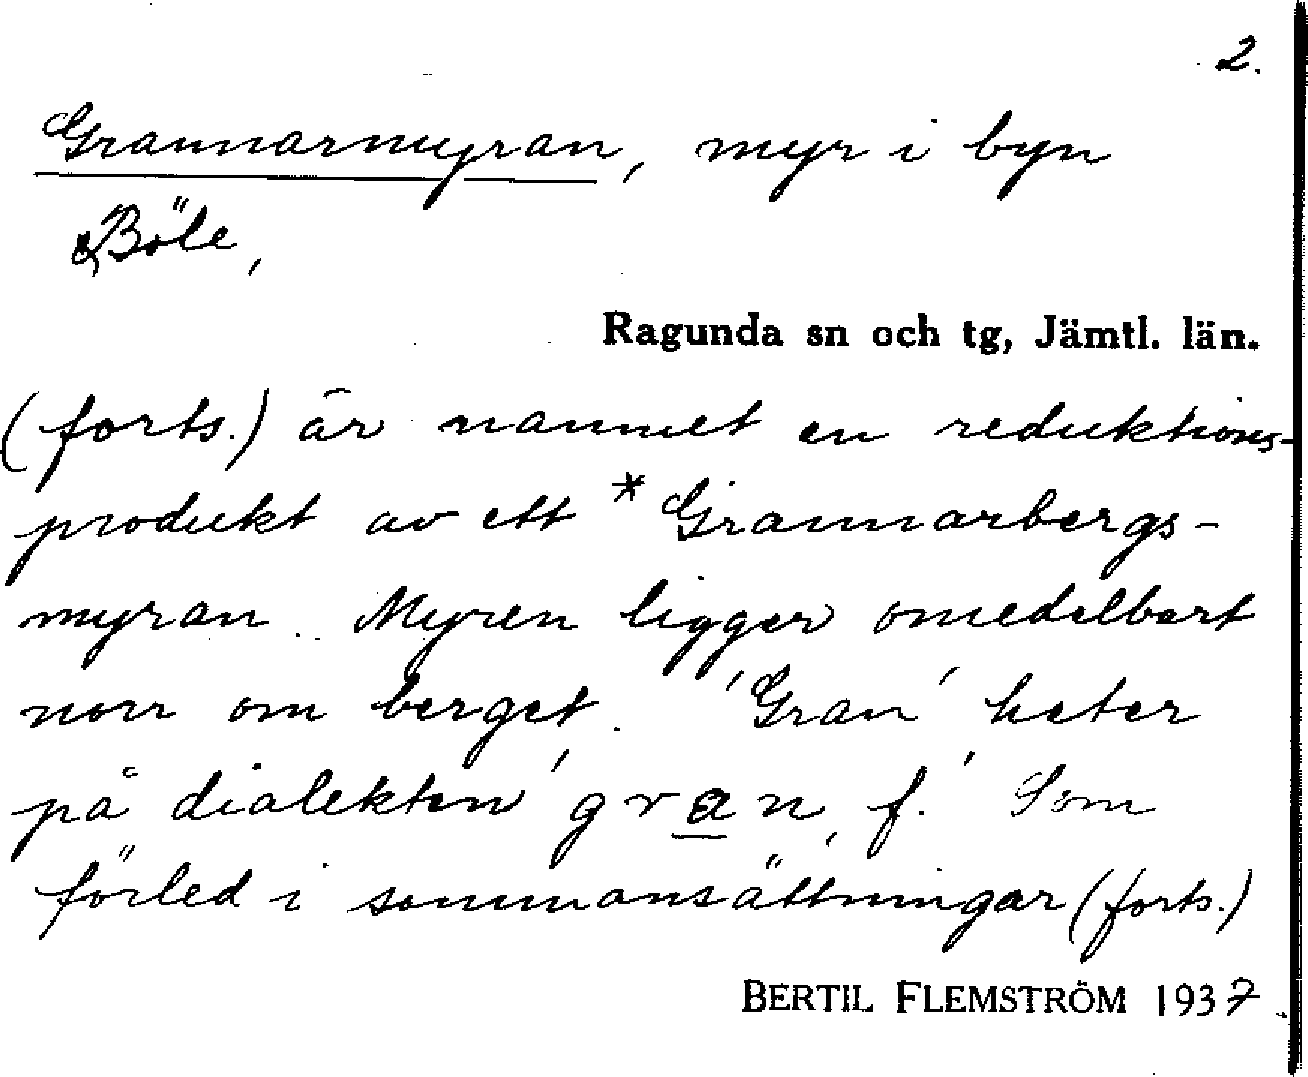 2.
Grannarmyran, myr i byn
Böle,
Ragunda sn och tg, Jämtl. län.
(forts.) är namnet en reduktions-
produkt av ett *Grannarbergs-
myran. Myren ligger omedelbart
norr om berget. 'Gran' heter
på dialekten 'gran, f.' Som
förled i sammansättningar (forts.)
BERTIL FLEMSTRÖM 1937